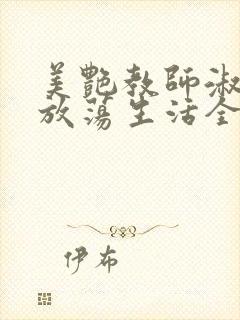 美艷教師淑
放蕩生活全
伊布